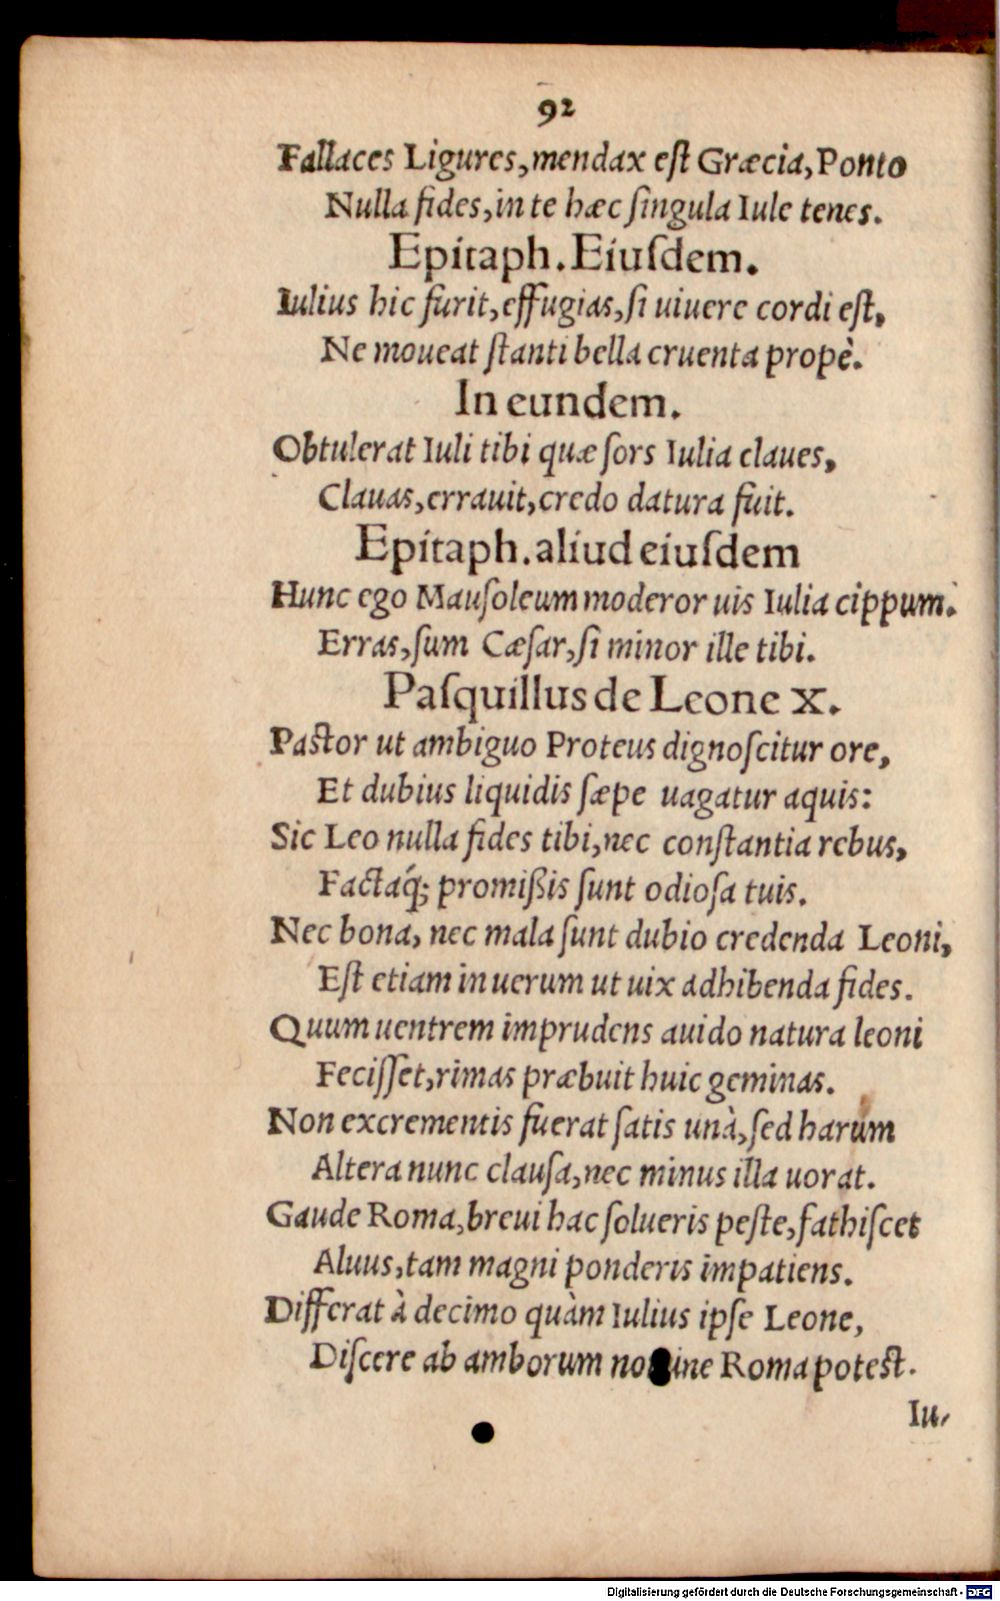 92
Fallaces Ligures, mendax eſt Græcia, Ponto
Nulla fides, in te hæc ſingula Iule tenes.
Epitaph. Eiuſdem.
Iulius hic furit, effugias, ſi uiuere cordi eſt,
Ne moueat ſtanti bella cruenta propè.
In eundem.
Obtulerat Iuli tibi quæ ſors Iulia claues,
Clauas, errauit, credo datura fuit.
Epitaph. aliud eiuſdem
Hunc ego Mauſoleum moderor uis Iulia cippum.
Erras, ſum Cæſar, ſi minor ille tibi.
Paſquillus de Leone X.
Paſtor ut ambiguo Proteus dignoſcitur ore,
Et dubius liquidis ſæpe uagatur aquis:
Sic Leo nulla fides tibi, nec conſtantia rebus,
Factaq́; promißis ſunt odioſa tuis.
Nec bona, nec mala ſunt dubio credenda Leoni,
Eſt etiam in uerum ut uix adhibenda fides.
Quum uentrem imprudens auido natura leoni
Feciſſet, rimas præbuit huic geminas.
Non excrementis fuerat ſatis unà, ſed harum
Altera nunc clauſa, nec minus illa uorat.
Gaude Roma, breui hac ſolueris peſte, fathiſcet
Aluus, tam magni ponderis impatiens.
Differat à decimo quàm Iulius ipſe Leone,
Diſcere ab amborum no ine Roma poteſt.
Iu-
Digitalisierung gefördert durch die Deutsche Forschungsgemeinschaft - DFG